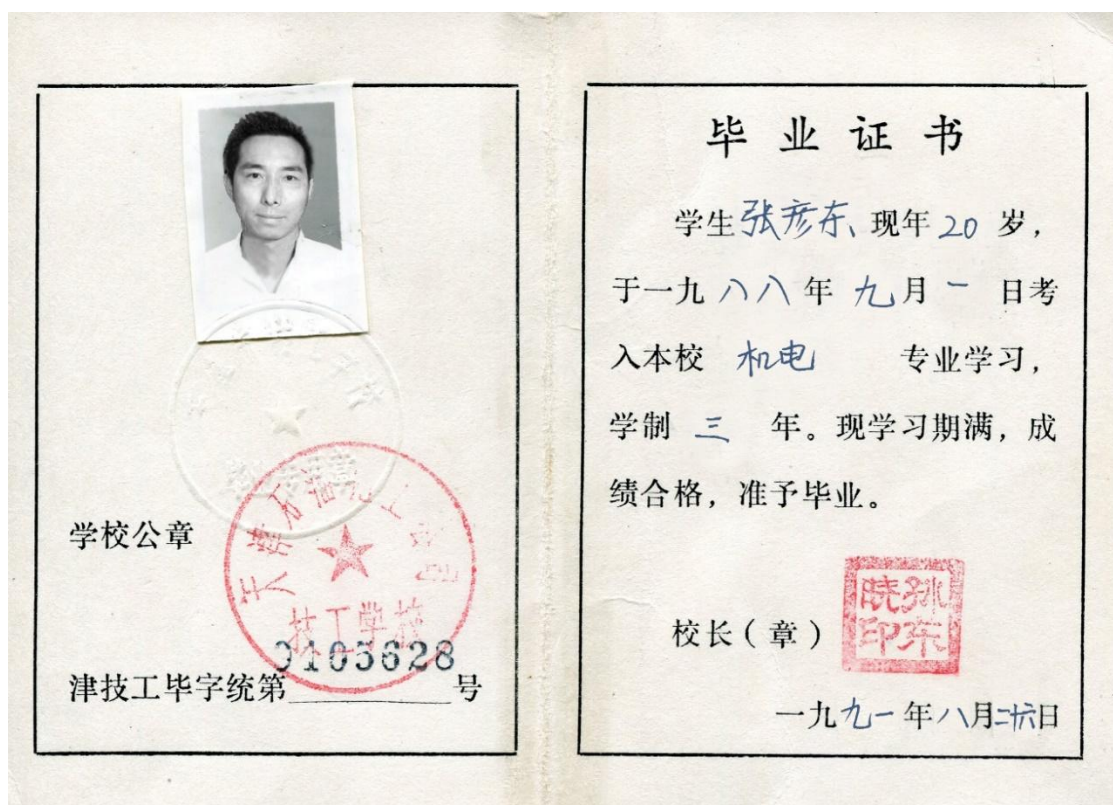 学校公章
天津石油化工公司
技工学校
津技工毕字统第0105628号
毕业证书
学生张彦东、现年20岁，
于一九八八年九月一日考
入本校 机电 专业学习，
学制 三 年。现学习期满，成
绩合格，准予毕业。
校长（章）
一九九一年八月二十六日